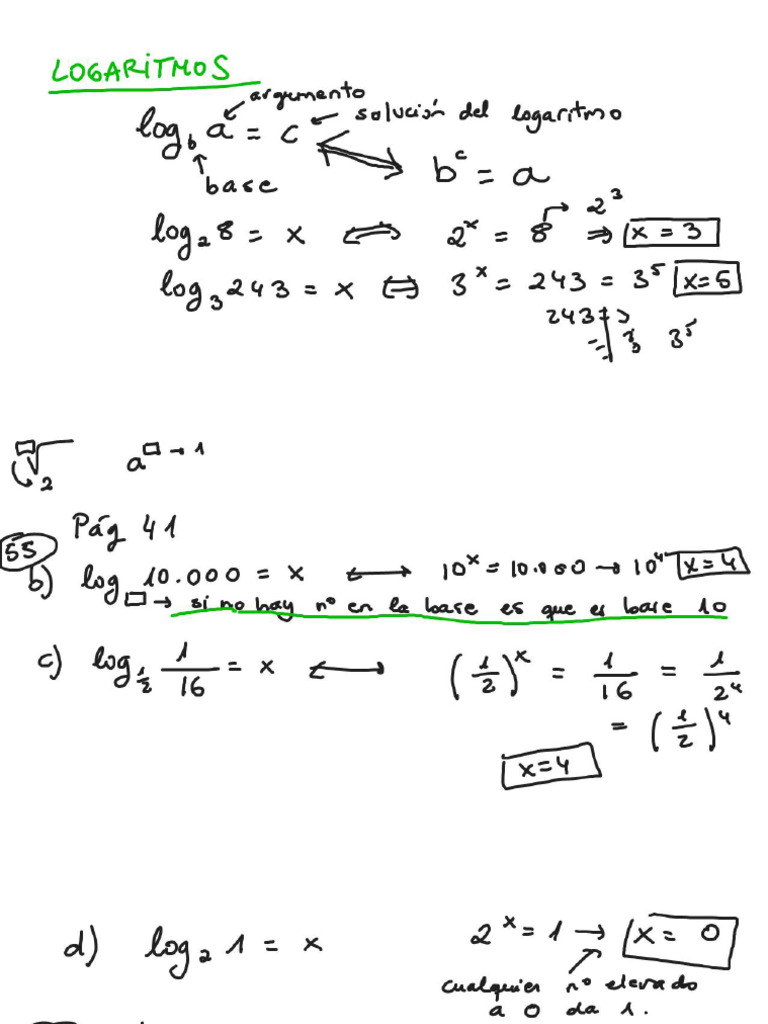 LOGARITMOS
argumento
log_b a = c ← solución del logaritmo
base
b^c = a
log_2 8 = x ⇔ 2^x = 8 → 2^3 ⇒ x = 3
log_3 243 = x ⇔ 3^x = 243 = 3^5 x=5
243
3^5
√ 2 a^□ → 1
Pág 41
55
b) log 10.000 = x ⟷ 10^x = 10.000 → 10^4 x=4
□ → si no hay nº en la base es que es base 10
c) log_{1/2} 1/16 = x ⟷ (1/2)^x = 1/16 = 1/2^4
= (1/2)^4
x=4
d) log_2 1 = x 2^x = 1 → x = 0
cualquier nº elevado
a 0 da 1.